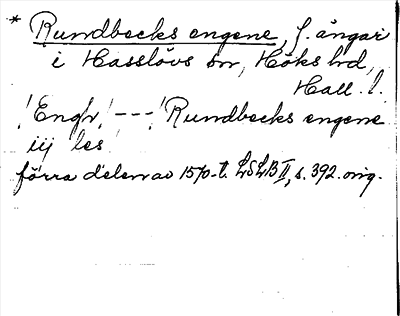 * Rundbecks engene, f. ängar
i Hasslövs sn, Höks hd,
Hall. l.
! Engh, ! --- ! Rundbecks engene
iij les
förra delen av 1570-t. LSLB II, s. 392. orig.